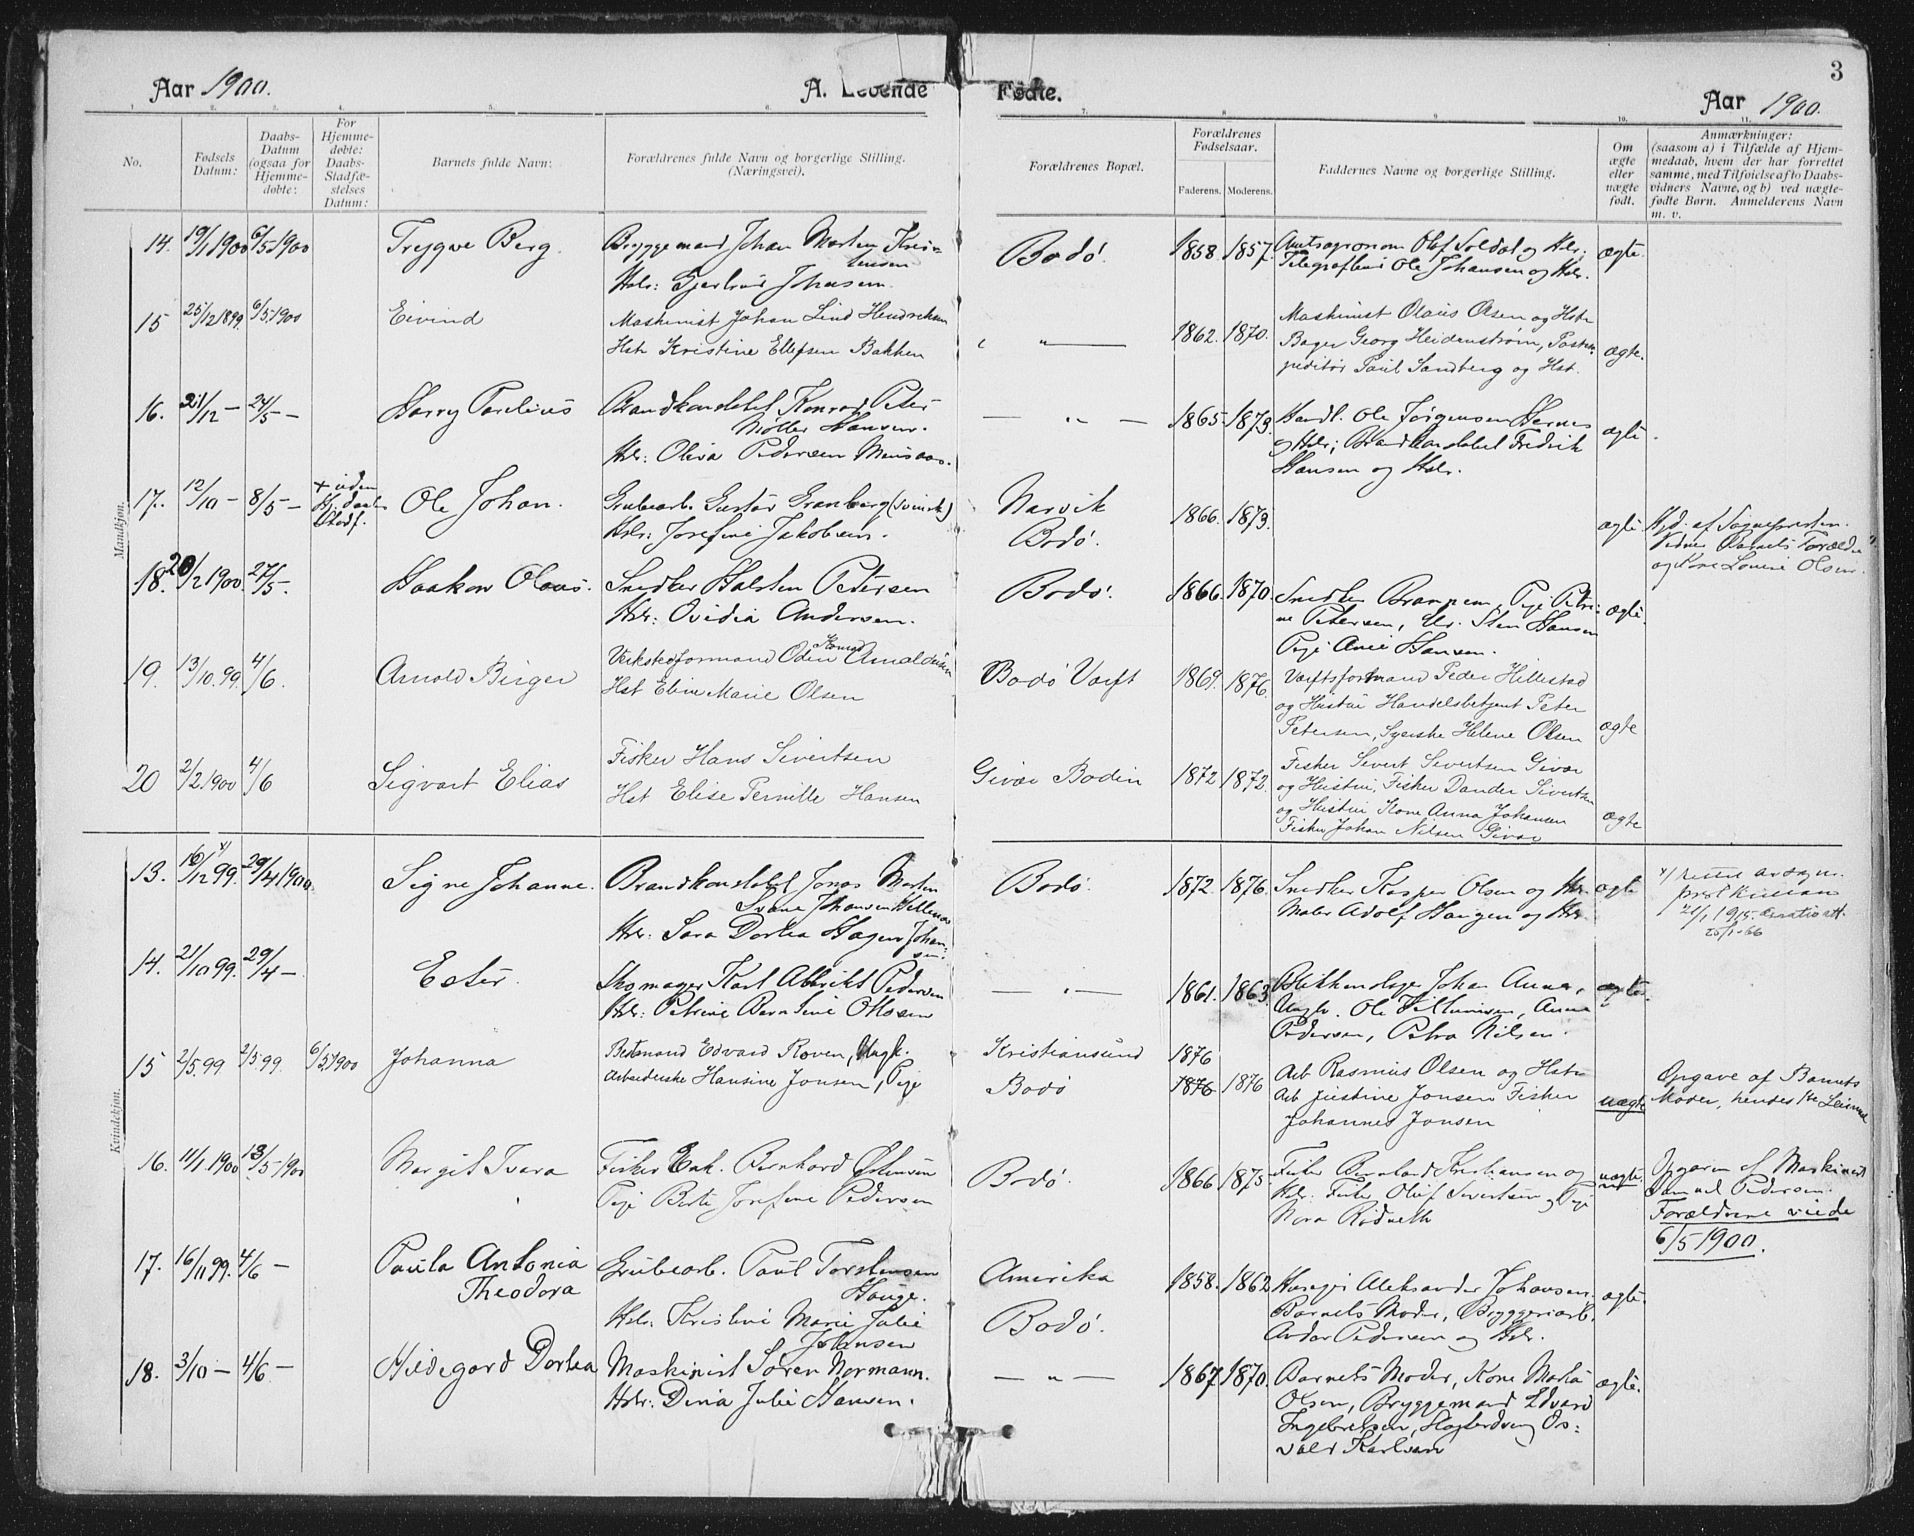 Aar 1900.
A. Levende Fødte.
Aar 1900.
3
1. 2. 3. 4. 5. 6. 7. 8. 9. 10. 11.
No.
Fødsels Datum:
Daabs-Datum (ogsaa for Hjemmedøbte:
For Hjemmedøbte: Daabs-Stadfæstelses Datum:
Barnets fulde Navn:
Forældrenes fulde Navn og borgerlige Stilling. (Næringsvei).
Forældrenes Bopæl.
Forældrenes Fødselsaar.
Faderens. Moderens.
Faddernes Navne og borgerlige Stilling.
Om ægte eller uægte født.
Anmærkninger: (saasom a) i Tilfælde af Hjemmedaab, hvem der har forrettet samme, med Tilføielse af to Daabsvidners Navne, og b) ved uægtefødte Børn. Anmelderens Navn m. v.
Mandkjøn.
14. 19/1 1900 6/5 1900 Trygve Berg. Bryggemand Johan Morten Kristensen Bodø. 1858. 1857. Amtsagronom Olaf Soldal og Hstr. ægte.
Hstr: Gjertrud Johnsen. Telegrafbud Ole Johansen og Hstr.
15 25/12 1899. 6/5 1900 Eivind Maskinist Johan Lind Hendriksen " 1862. 1870. Maskinist Olaus Olsen og Hstr ægte.
Hstr Kristine Ellefsen Bakken Bager Georg Heidenstrøm, Postexpeditør Paul Sandberg og Hst.
16. 21/12 — 24/5 — Harry Parelius Brandkonstabel Konrad Peter — " — 1865. 1873. Handl. Ole Jørgensen Hernes ægte.
Møller Hansen. og Hstr; Brandkonstabel Fredrik
Hstr: Oliva Pedersen Hansen og Hstr.
17. 12/10 — 8/5 — + uden Hj. daabs Stadf. Ole Johan. Grubearb. Gustav Granberg (Svensk) Narvik 1866. 1873. ægte Hjd. af Sognepresten.
Hstr: Josefine Jakobsen. Bodø. Vidner Barnets Forældre
og Kone Lovise Olsen.
18. 20/2 1900. 27/5. Haakon Olaus. Snedker Halsten Petersen Bodø. 1866. 1870. Snedker ægte.
Hstr: Ovidia Andersen. Pige Petrine Petersen, Sten Hansen
Pige Anie Hansen.
19. 13/10.99. 4/6. Arnold Birger Verkstedformand Odin Konrad Arnoldussen Bodø Værft 1869. 1876. Værftsformand Peder Hillestad
Hst Eline Marie Olsen og Hustru Handelsbetjent Peter
Petersen, Syerske Helene Olsen ægte
20 2/2.1900 4/6 Sigvart Elias Fisker Hans Sivertsen Givær Bodin 1872 1872. Fisker Sivert Sivertsen Givær
Hst Elise Pernille Hansen og Hustru, Fisker Dander Sivertsen
og Hustru Kone Anna Johansen ægte
Fisker Johan Nilsen Givær
Kvindekjøn.
13. 16/12 99. x) 29/4 1900. Signe Johanne. Brandkonstabel Jonas Morten Bodø. 1872. 1876. Snedker Kasper Olsen og Hstr ægte x)
Svane Johansen Maler Adolf Haugen og Hstr.
Hstr: Sara Dortea Hagen Johansen. 25/1-66
14. 21/10 99. 29/4 — Ester. Skomager Karl Albrikt Pedersen — " — 1861. 1863. Blikkenslager Johan ægte.
Hstr: Petrine Berntine Ottosen Ungk. Ole Anna
Pedersen, Petra Nilsen.
15 2/5 99 2/5.99. 6/5 1900 Johanna Bestmand Edvard Roven, Ungk. Kristiansund 1876 Arb Rasmus Olsen og Hstr Opgave af Barnets
Arbeiderske Hansine Jonsen, Pige Bodø 1876 1876 Arb Justine Jonsen Fisker uægte Moder, hendes 1ste
Johannes Jonsen
16. 11/1.1900 13/5-1900 Margit Tvara Fisker Enk. Bernhard Østensen Bodø. 1866 1875. Fisker Bernhard Kristiansen og uægte. Opgaven af Maskinist
Pige Berte Josefine Pedersen Hstr: Fisker Oluf Sivertsen og Pige Samuel Pedersen.
Nora Rødseth Forældrene viede
6/5 1900.
17. 16/11 99. 4/6 — Paula Antonia Theodora Grubearb. Paul Torstensen Hauge. Amerika 1858. 1862 Aleksander Johansen. ægte.
Hstr: Kristine Marie Julie Johansen Bodø. Barnets Moder, Bryggeriarb.
Pedersen og Hstr.
18. 3/10 — 4/6 — Hildegard Dortea Maskinist Søren Normann. — " — 1867. 1870. Barnets Moder, Kone ægte.
Hstr: Dina Julie Hansen. Olsen, Bryggemand Edvard
Ingebretsen, Osvald Karlsen